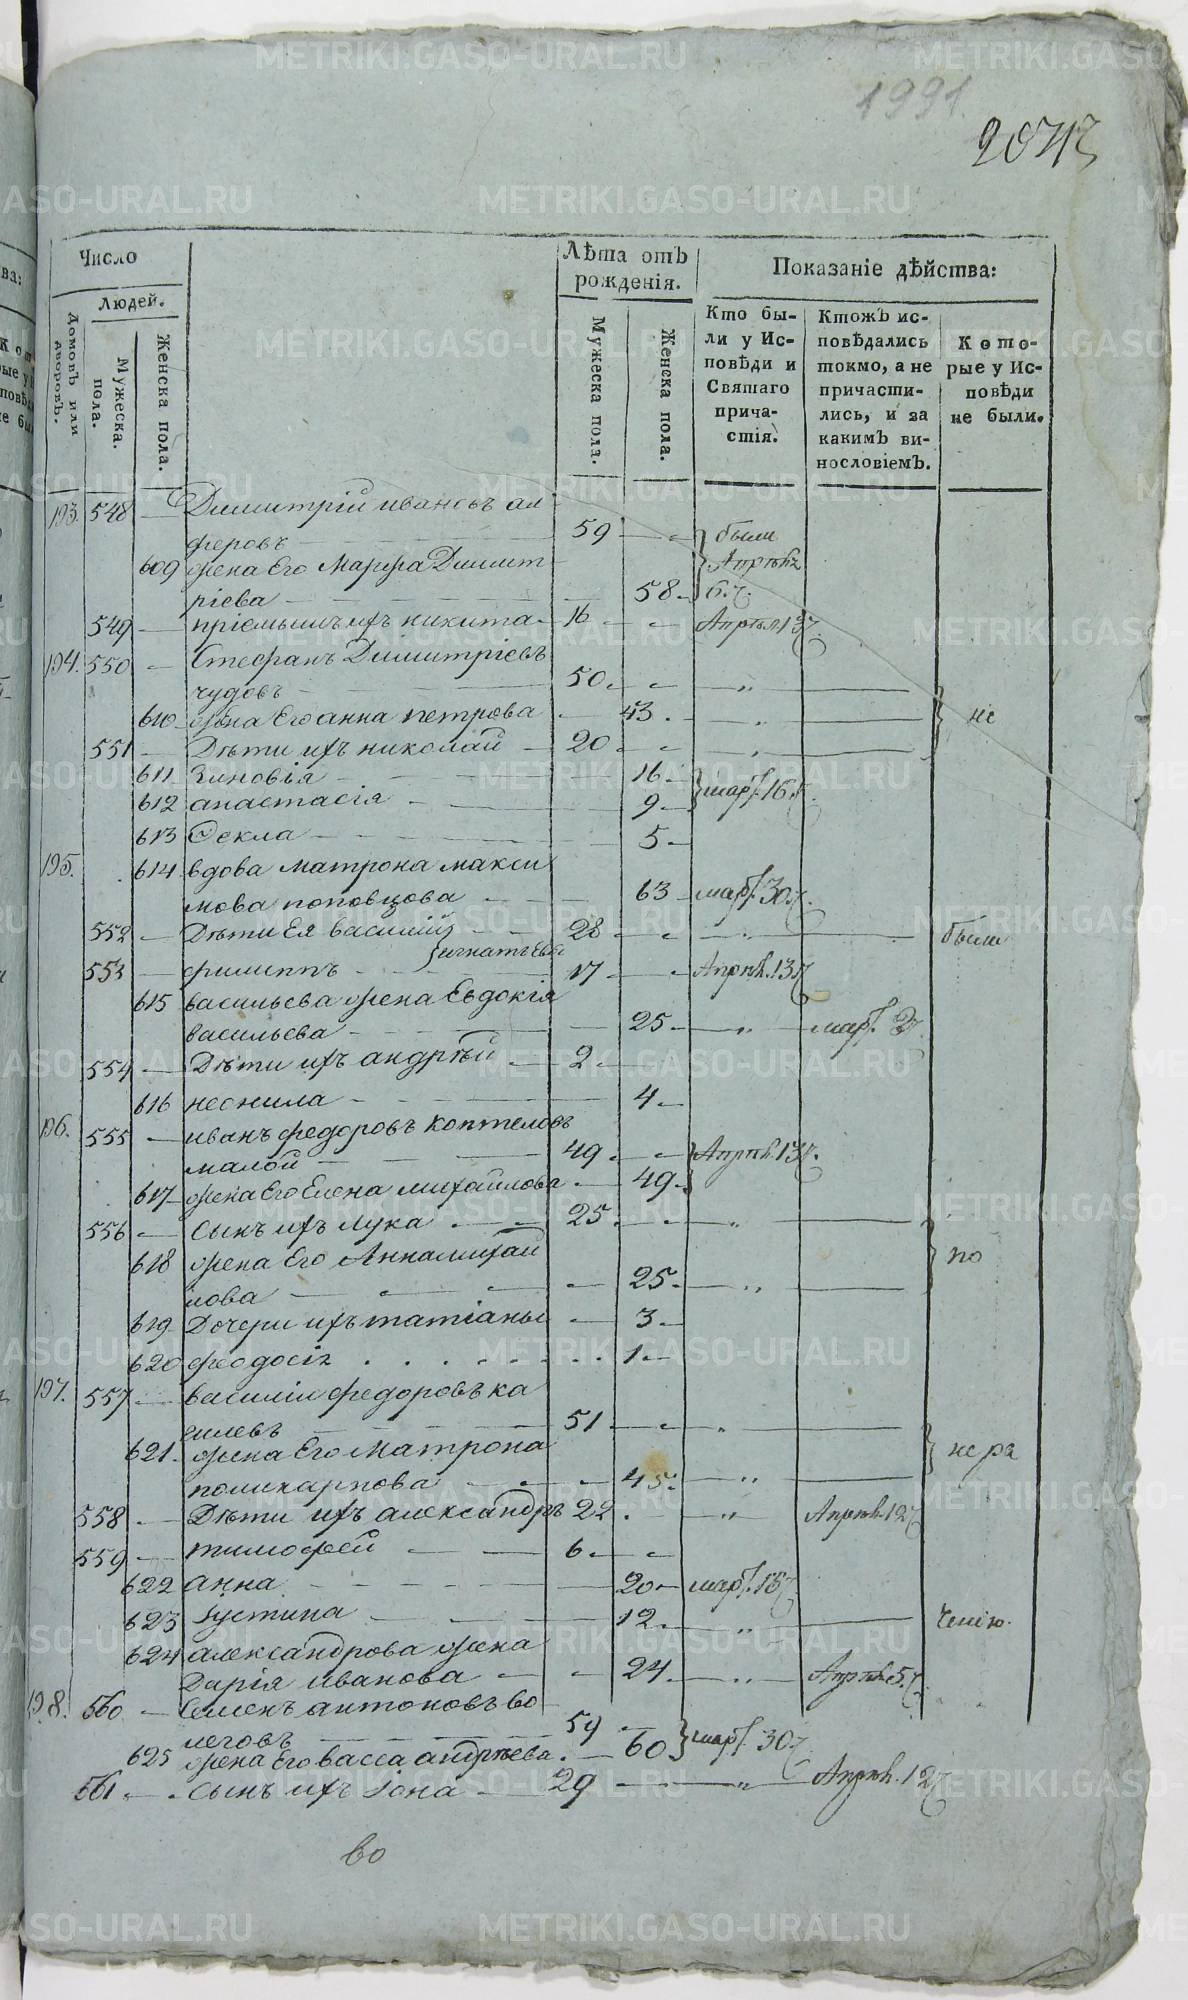 1991.
2043
Число
Людей.
Домовъ или дворовъ.
Мужеска пола.
Женска пола.
Лѣта отъ рожденія.
Мужеска пола.
Женска пола.
Показаніе дѣйства:
Кто бы-
ли у Ис-
повѣди и
Святаго
прича-
стія.
Ктожъ ис-
повѣдались
токмо, а не
причасти-
лись, и за
какимъ ви-
нословіемъ.
Кото-
рые у Ис-
повѣди
не были.
193. 548 — Димитрій ивановъ ал-
феровъ — 59 — были
609 жена Его Марфа Димит
ріева — 58 — 6.
549 — пріемышъ ихъ никита — 16 — Апрѣл. 13
194. 550 — Стефанъ Димитріевъ
чудовъ — 50 — „ —
610 жена Его анна петрова — 43 — „ — не
551 — Дѣти ихъ николай — 20 — „ —
611 Зиновія — 16 —
612 анастасія — 9 — март. 16
613 Фекла — 5 —
195. 614 вдова матрона макси
мова поповцова — 63 — март. 30
552 — Дѣти Ея василий — 28 — „ — были
игнатьевы
553 — филиппъ — 17 — Апрѣл. 13
615 васильева жена Евдокія
васильева — 25 — „ — март. 2
554 — Дѣти ихъ андрѣй — 2 —
616 неонила — 4 —
196. 555 — иванъ федоровъ коптеловъ
малой — 49 — Апрѣл. 13
617 жена Его Елена михайлова — 49 —
556 — сынъ ихъ лука — 25 — „ —
618 жена Его Анна михай — по
лова — 25 — „ —
619 Дочери ихъ татіаны — 3 —
620 феодосія . . . . . . . 1 —
197. 557 — василий федоровъ ка
силевъ — 51 — „ —
621. жена Его Матрона — не ра
поликарпова — 45 — „ —
558 — Дѣти ихъ александръ 22 — „ Апрѣл. 12
559 — тимофей — 6 —
622 анна — 20 — март. 16
623 Іустина — 12 — „ — чению.
624 александрова жена
Дарія иванова — 24 — „ Апрѣл. 5
198. 560 — Семенъ антоновъ во
леговъ — 59 —
625 жена Его васса андрѣева. — 60 март. 30
561 — сынъ ихъ Іона — 29 — „ — Апрѣл. 12
во
METRIKI.GASO-URAL.RU